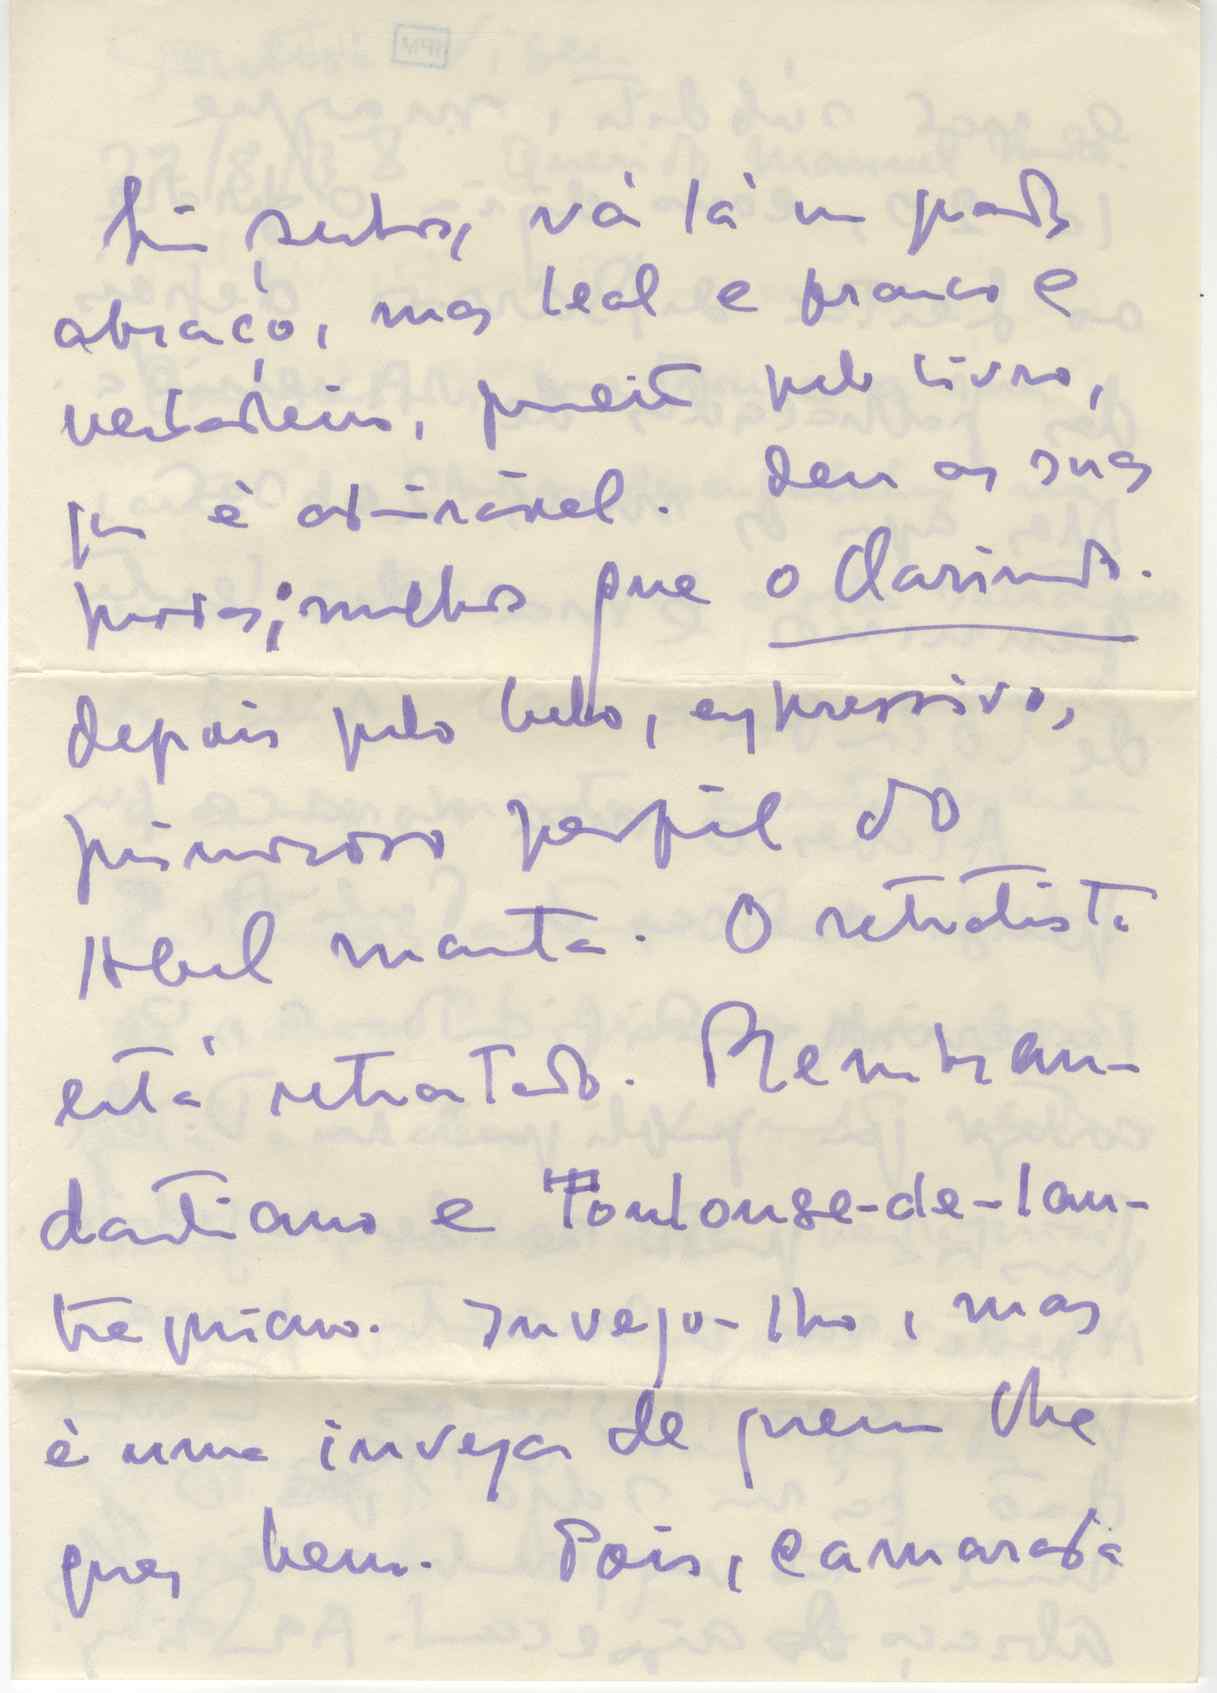 Sim senhor, vá lá um grande
abraço, mas leal e franco e
verdadeiro, primeiro pelo livro,
que é admirável. Dem as suas
provas; melhor que o Clarimundo.
depois pelo belo, expressivo,
primoroso perfil do
Abel Manta. O retratista
está retratado. Rembran-
dartiano e Toulouse-de-lau-
trequiano. Invejo-lho, mas
é uma inveja de quem lhe
quer bem. Pois, camarada